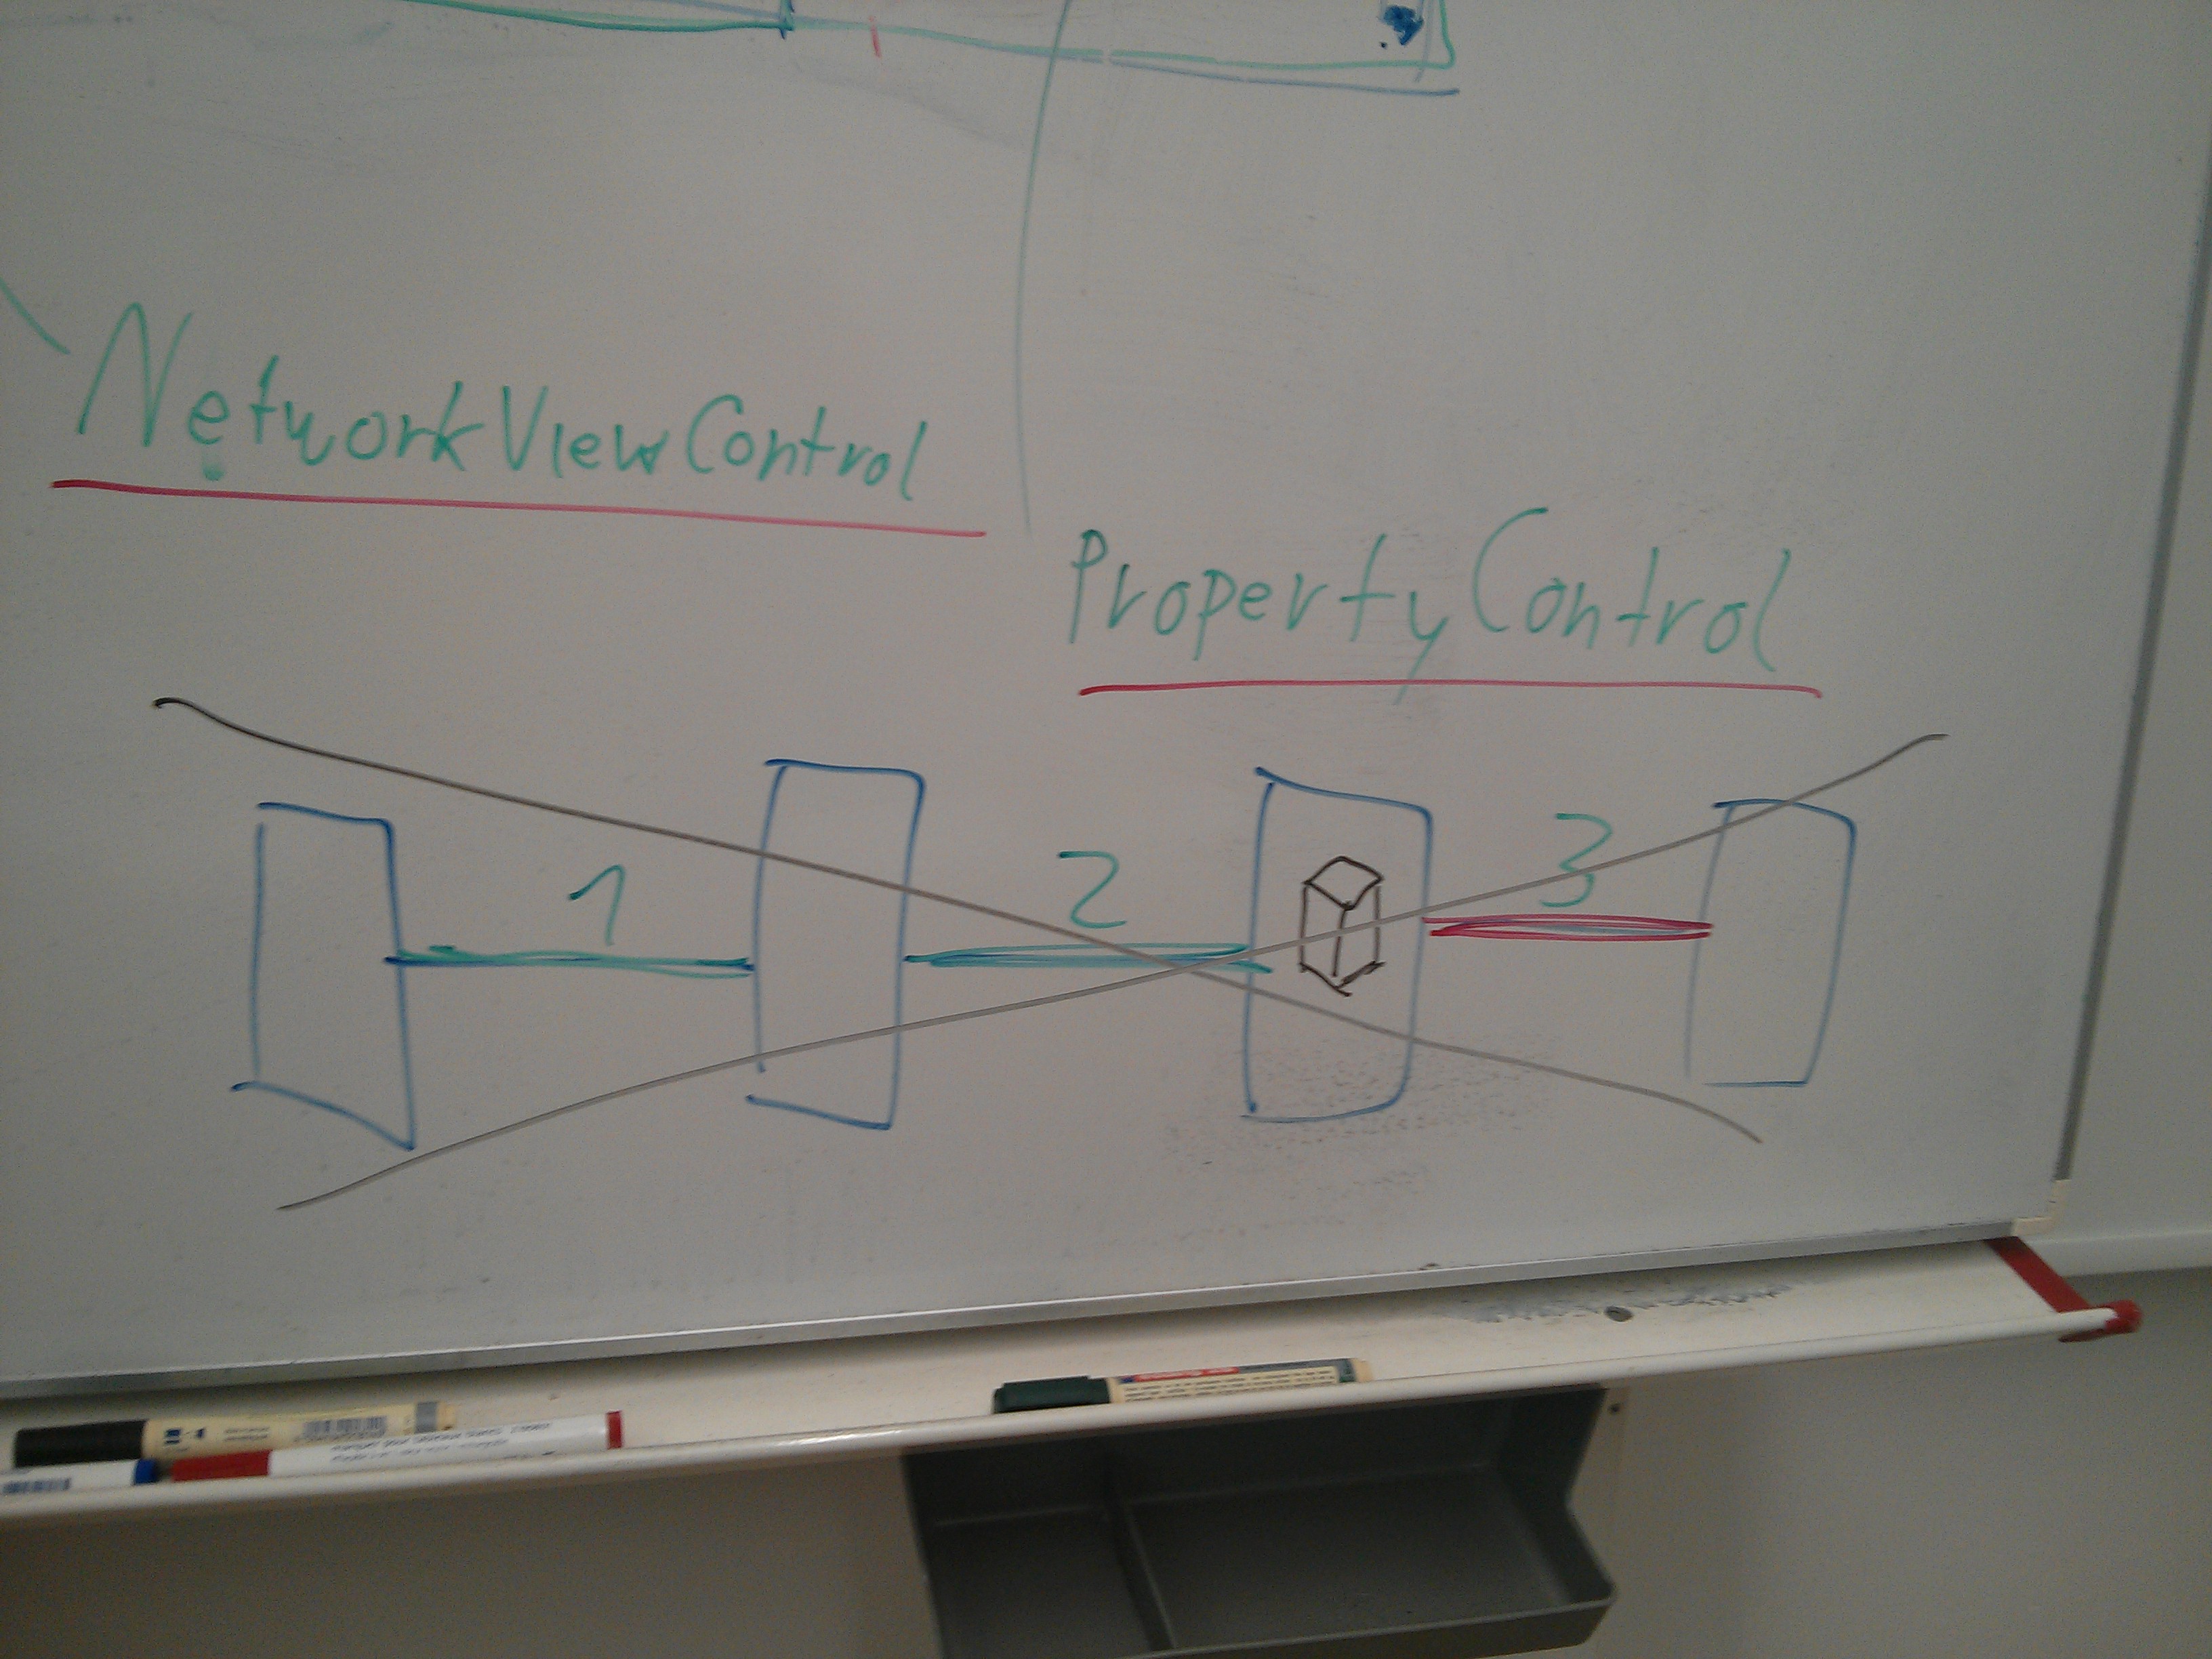 NetworkViewControl
PropertyControl
1 2 3